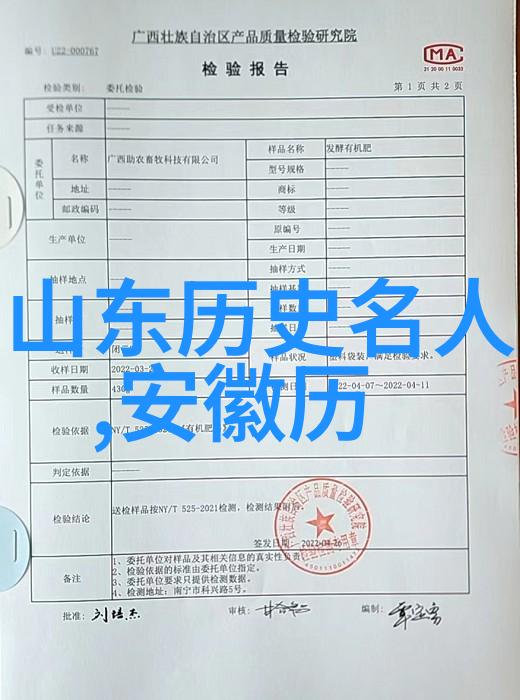 广西壮族自治区产品质量检验研究院
编号: U22-000767
检验报告
MA
21 20 00 11 0033
检验类别: 委托检验
第 1 页 共 2 页
受检单位 ——
任务来源 ——
委托单位
名称 广西助农畜牧科技有限公司 样品名称 发酵有机肥
型号规格 ——
地址 —— 商标 ——
邮政编码 —— 等级 ——
生产单位 —— 原编号 ——
生产日期 ——
抽样地点 抽样方式 ——
山东历史名人
,安徽历
样品状况
收样日期 2022-03-2
样品数量 430 2022-04-07～2022-04-11
检验依据 NY/T 525 有机肥
判定依据 ——
检验结论 送检样品按NY/T 525-2021检测，检测结果
签发日期: 2022-04-26
备注
1、委托单位对样品及其相关信息的真实性负责。
2、检验依据的标准由委托单位指定。
3、委托单位要求只提供检测数据。
4、检测地址: 南宁市科兴路5号。
批准: 审核: 编制: